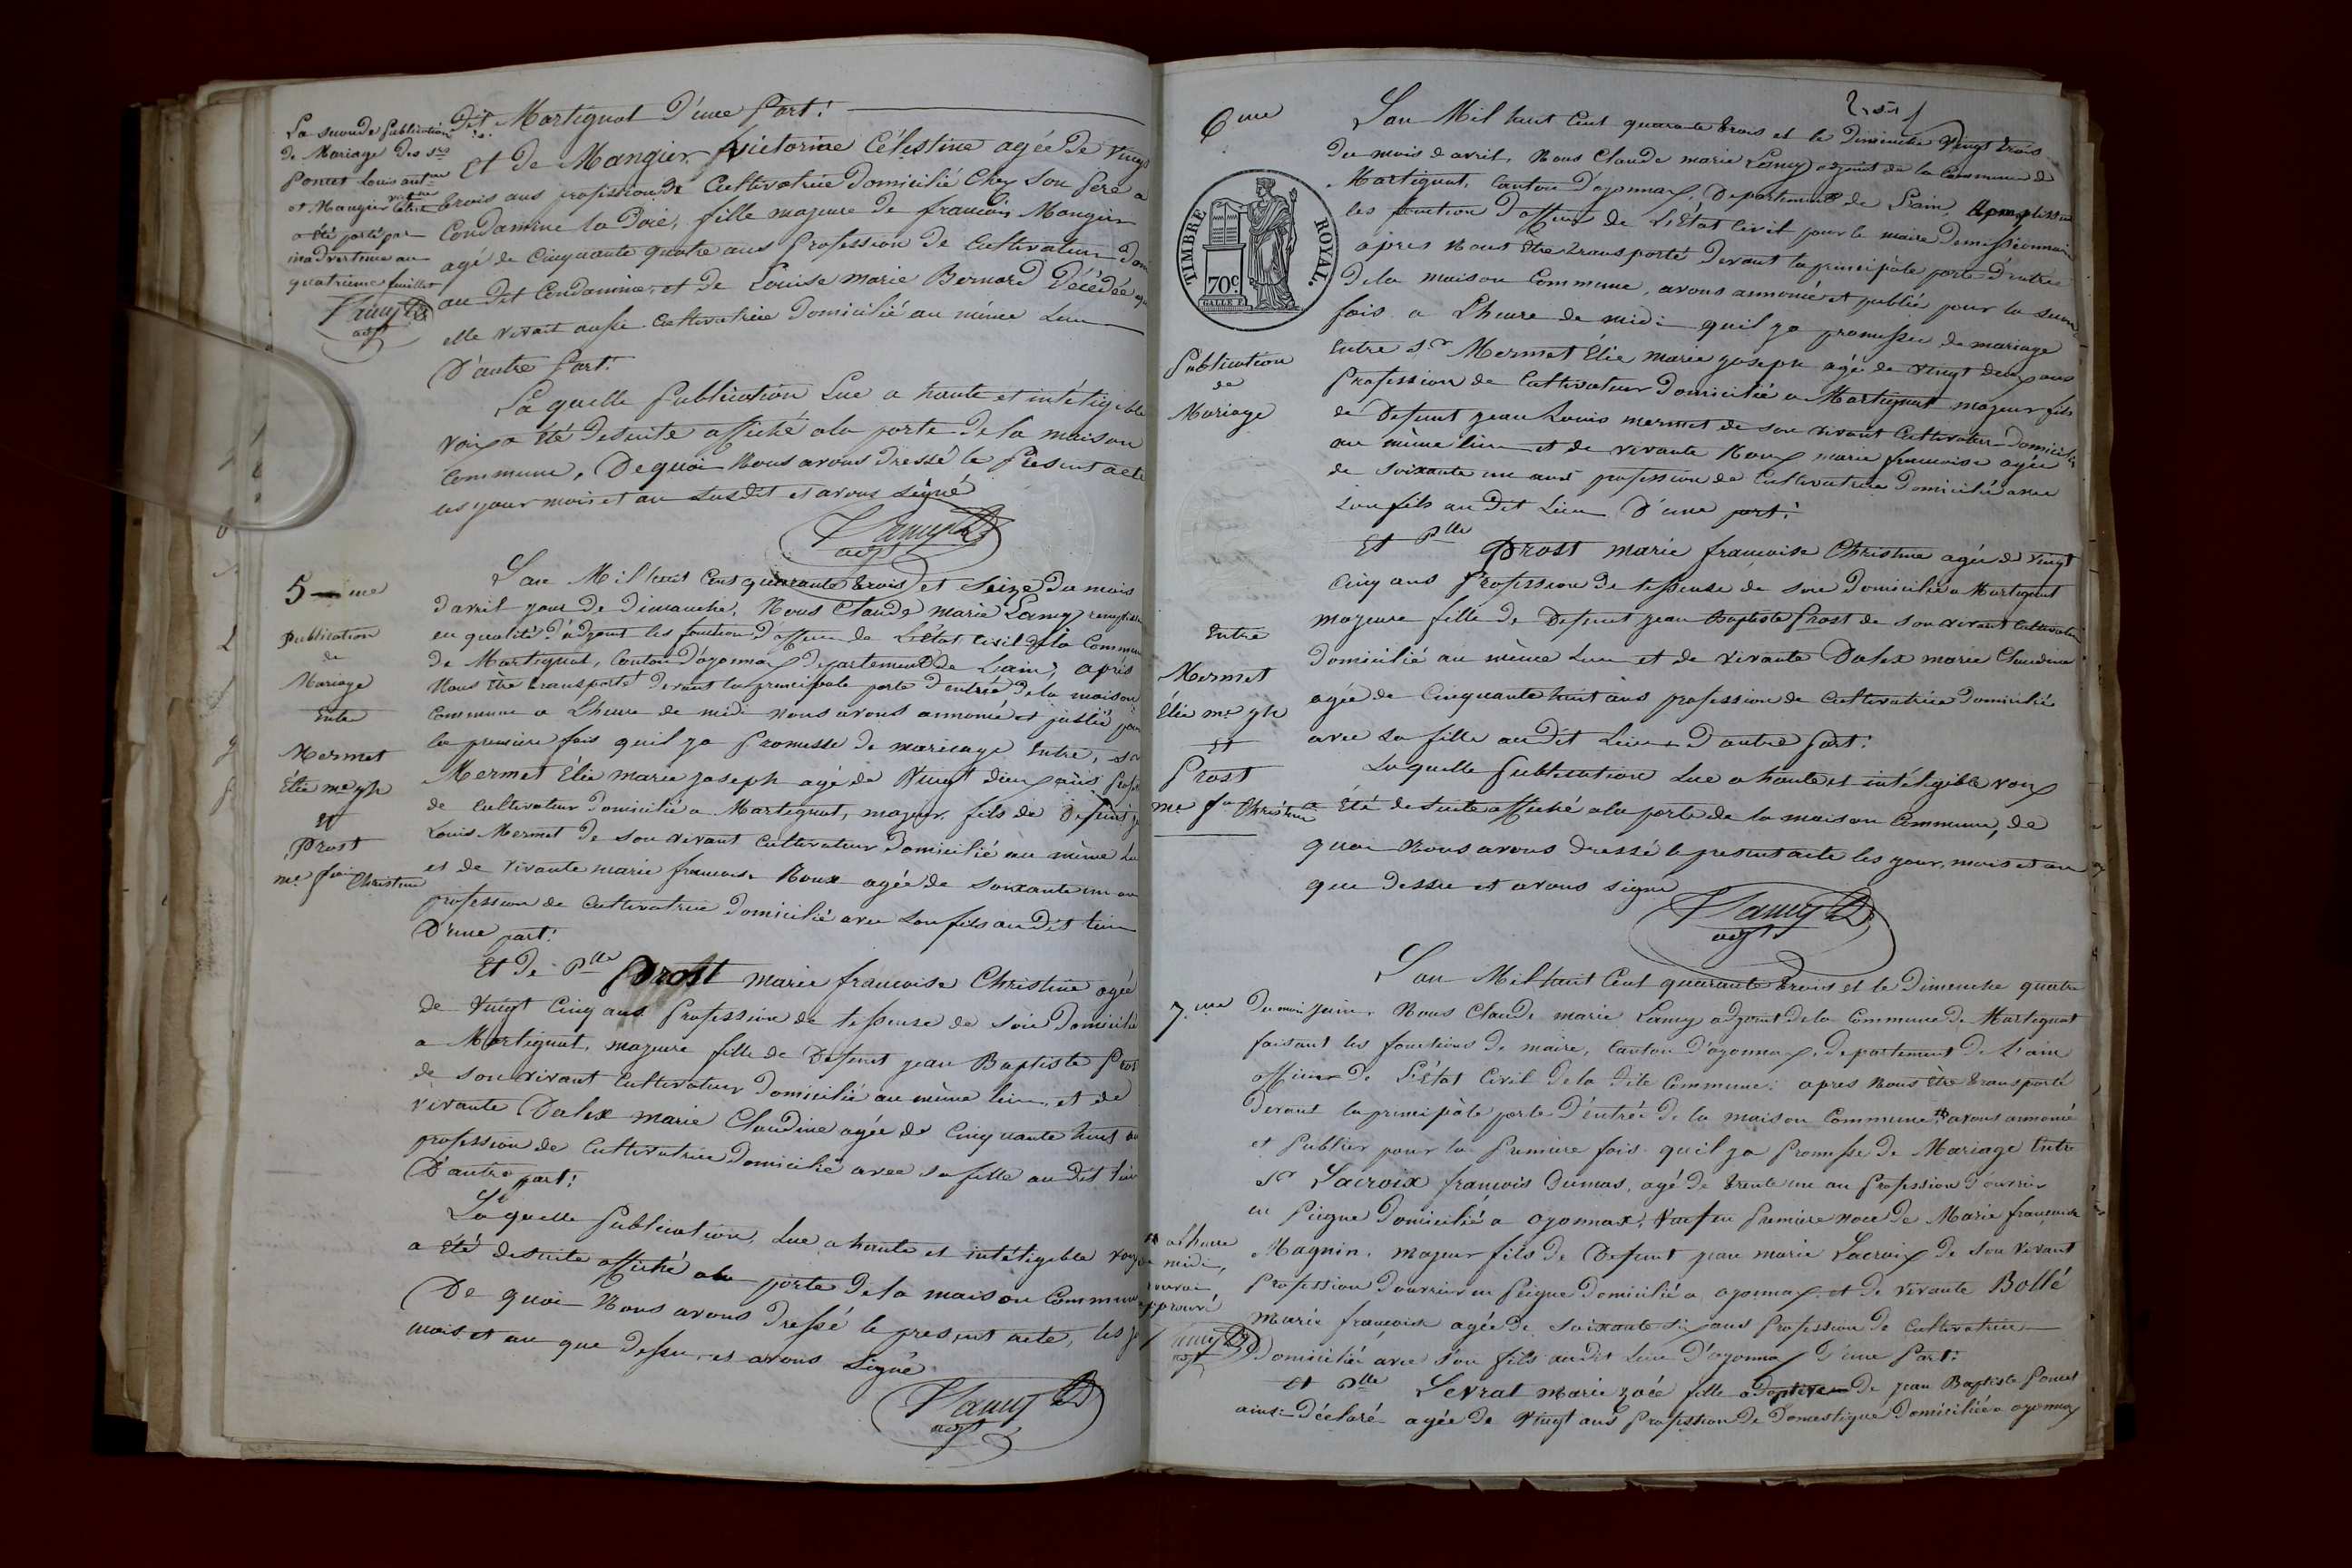 La seconde Publication
de Mariage des srs
Poncet Louis antne
et Mangier vicne Célest
a été porté par
inadvertence au
quatrieme feuillet
Lamy
adjt
Dit Martignat D'une Part!
Et de Mangier Victorine Célestine agée de vingt
trois ans profession de Cultivatrice Domicilié Chez son Pere a
Condamine la Doie, fille majeure de francois Mangier
agé de Cinquante quatre ans Profession de Cultivateur Domi
au dit Condamine et de Louise Marie Bernard Décédée
elle vivait aussi Cultivatrice Domicilié au même Lieu
D'autre Part!
La quelle Publication Lue a haute et intéligible
voix a été desuite affiché ala porte de la maison
Commune, De quoi Nous avons dressé le Present acte
les jour mois et an susdit et avons signé
Lamy
adjt
5me
publication
de
Mariage
Entre
Mermet
Élie me jph
Et
Prost
me fse Christine
L'an Mil huit Cent quarante trois et seize du mois
d'avril jour de Dimanche, Nous Claude marie Lamy remplissa
en qualité d'adjoint les fonction d'officier de L'état Civil de la Commune
de Martignat, Canton D'oyonnax Departement de L'ain, après
Nous être transporté devant la principale porte d'entrée de la maison
Commune a L'heure de midi nous avons annoncé et publié pour
la premiere fois quil ya Promesse de mariage Entre, sr
Mermet Élie marie joseph agé de Vingt deux ans Profes
de Cultivateur Domicilié a Martignat, majeur, fils de Defunt je
Louis Mermet de son vivant Cultivateur Domicilié au même Lieu
et de vivante marie francoise Roux agée de soixante un an
profession de Cultivatrice Domicilié avec son fils au Dit lieu
D'une part!
Et De Dlle Prost marie francoise Christine agée
de Vingt Cinq ans Profession de tisseuse de soie Domicilié
a Martignat, majeure fille de Defunt jean Baptiste Pros
de son vivant Cultivateur Domicilié au même lieu et de
vivante Dalex marie Claudine agée de Cinquante huit an
profession de Cultivatrice Domicilié avec sa fille au dit lieu
D'autre part!
La quelle Publication, Lue a haute et intéligible voix
a été desuite affiché ala porte de la maison Commune
De quoi Nous avons Dressé le present acte, les j
mois et an que Dessu, et avons Signé
Lamy
adjt
6me
TIMBRE ROYAL
70c
Publication
de
Mariage
Entre
Mermet
Élie me jph
Et
Prost
me fse Christine
L'an Mil huit Cent quarante trois et le Dimanche Vingt trois
du mois d'avril, Nous Claude marie Lamy adjoint de la Commune de
Martignat, Canton D'oyonnax, Departement de L'ain,
les fonction D'officier de L'état Civil pour le maire Demissionnaire
apres Nous Etre transporté Devant la principale porte D'entrée
De la maison Commune, avons annoncé et publié pour la secon
fois a L'heure de midi quil ya promesse de mariage
Entre sr Mermet Élie marie joseph agé de Vingt deux ans
Profession de Cultivateur Domicilié a Martignat majeur fils
de Defunt jean Louis mermet de son vivant Cultivateur Domicilié
au même lieu et de vivante Roux marie francoise agée
de soixante un ans profession de Cultivatrice Domicilié avec
son fils au Dit Lieu D'une part!
Et Dlle Prost marie francoise Christine agée de Vingt
Cinq ans Profession de tisseuse de soie Domicilié a Martignat
majeure fille de Defunt jean Baptiste Prost de son vivant Cultivateur
Domicilié au même Lieu et de vivante Dalex marie Claudine
agée de Cinquante huit ans profession de Cultivatrice Domicilié
avec sa fille au Dit Lieu D'autre part!
La quelle Publication Lue a haute et intéligible voix
a Été desuite affiché ala porte de la maison Commune, de
quoi Nous avons dressé le present acte les jour, mois et an
que dessu et avons signé
Lamy
adjt
7me
L'an Mil huit Cent quarante trois et le Dimenche quatre
Du mois juin, Nous Claude marie Lamy adjoint dela Commune de Martignat
faisant les fonctions de maire, Canton D'oyonnax, departement de L'ain
officier De L'état Civil De la dite Commune, apres Nous être transporté
Devant la principale porte D'entrée De la maison Commune avons annoncé
et Publier pour la Premiere fois quil ya Promesse De Mariage Entre
sr Lacroix francois Dumas, agé de trente un an Profession D'ouvrier
en Peigne Domicilié a oyonnax, Veuf en Premiere noce De Marie francoise
Magnin, majeur fils de Defunt jean marie Lacroix de son vivant
Profession D'ouvrier en Peigne Domicilié a oyonnax et de vivante Bollé
Marie francoise agée de soixante six ans Profession De Cultivatrice
Domiciliée avec son fils audit Lieu D'oyonnax D'une Part!
Et Dlle Levrat Marie zoée fille adoptive De jean Baptiste Poncet
ainsi Déclaré agée de Vingt ans Profession De Domestique Domiciliée a oyonnax
a l'heure
de midi,
approuvé
Lamy
adjt